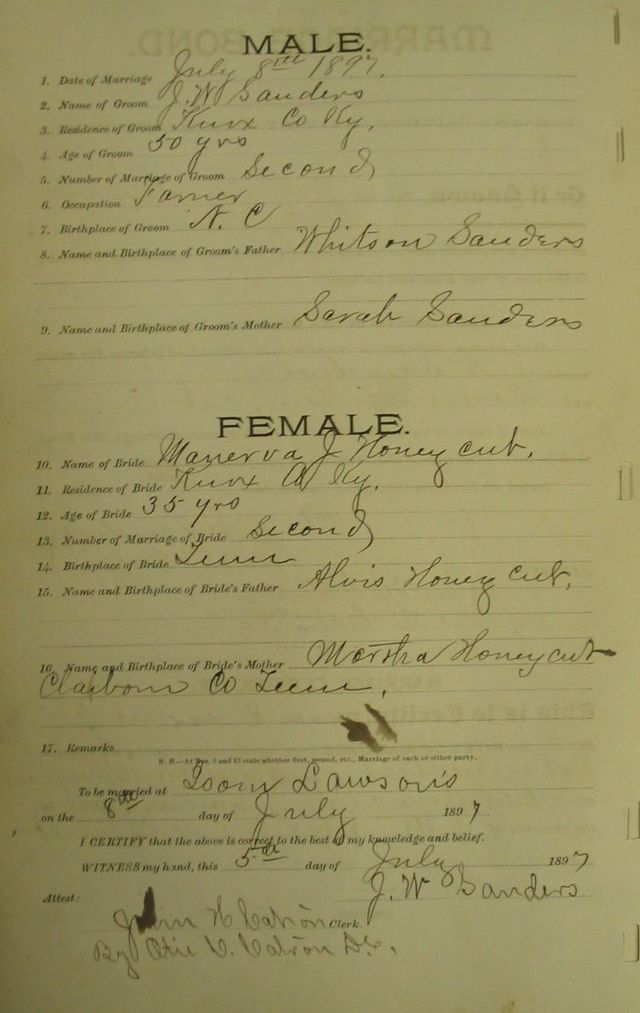 MALE.
1. Date of Marriage July 8th 1897.
2. Name of Groom J. W Sanders
3. Residence of Groom Knox Co Ky,
4. Age of Groom 50 yrs
5. Number of Marriage of Groom Second
6. Occupation Farmer
7. Birthplace of Groom N. C
8. Name and Birthplace of Groom's Father Whitson Sanders
9. Name and Birthplace of Groom's Mother Sarah Sanders
FEMALE.
10. Name of Bride Manerva J Honeycut,
11. Residence of Bride Knox Co Ky.
12. Age of Bride 35 yrs
13. Number of Marriage of Bride Second
14. Birthplace of Bride Tenn
15. Name and Birthplace of Bride's Father Alvis Honeycut,
16. Name and Birthplace of Bride's Mother Martha Honeycut
Claiborn Co Tenn,
17. Remarks
N. B.—At Nos. 5 and 13 state whether first, second, etc., Marriage of each or either party.
To be married at Isom Lawson's
on the 8th day of July 1897
I CERTIFY that the above is correct to the best of my knowledge and belief.
WITNESS my hand, this 5th day of July 1897
J. W Sanders
Attest:
John H Catron Clerk
By V. Catron